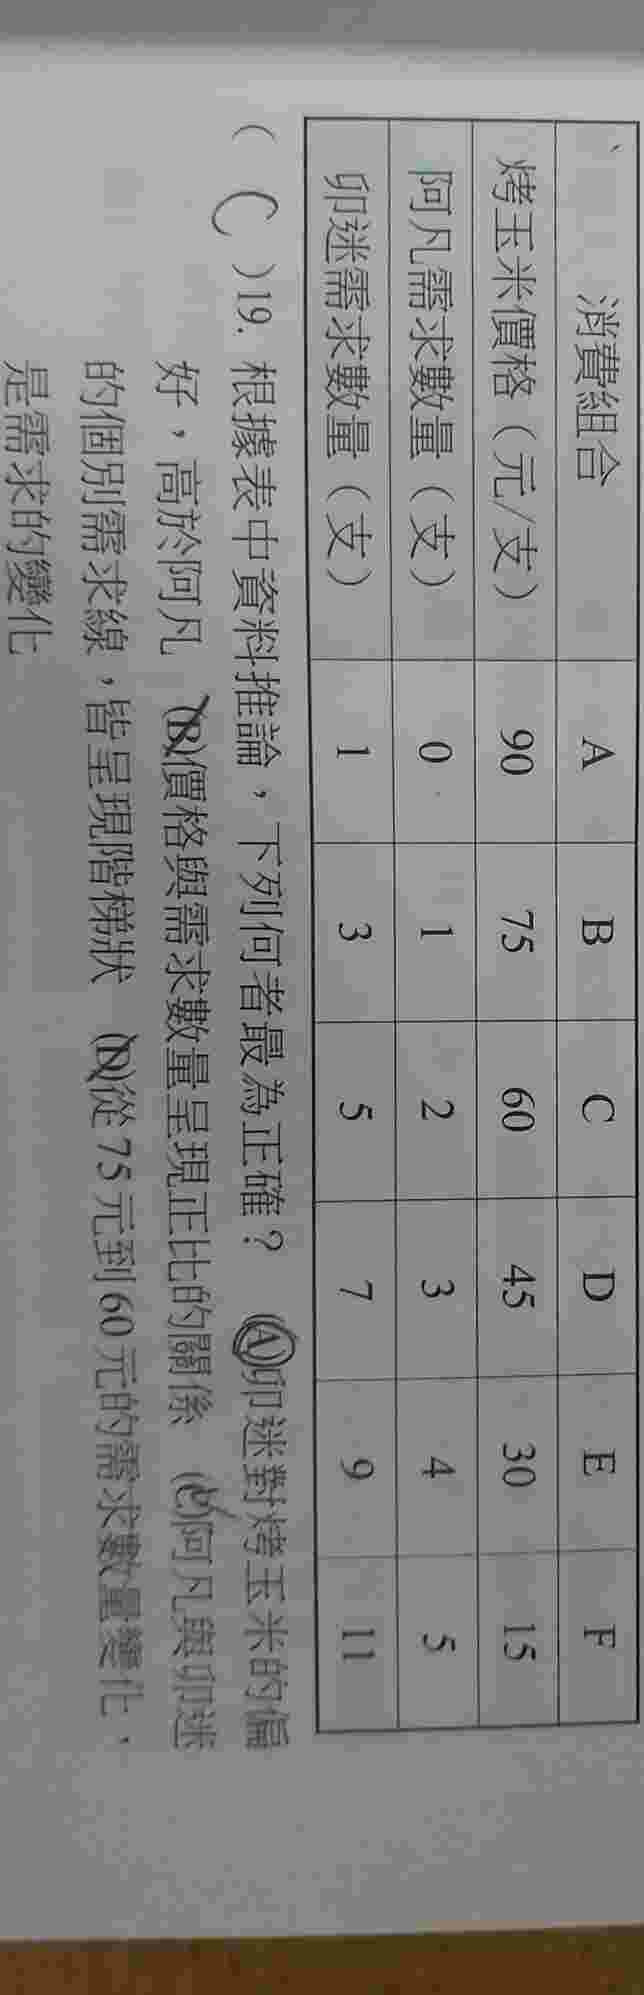 消費組合 A B C D E F
烤玉米價格（元/支） 90 75 60 45 30 15
阿凡需求數量（支） 0 1 2 3 4 5
卯迷需求數量（支） 1 3 5 7 9 11
( C )19. 根據表中資料推論，下列何者最為正確？ (A)卯迷對烤玉米的偏
好，高於阿凡 (B)價格與需求數量呈現正比的關係 (C)阿凡與卯迷
的個別需求線，皆呈現階梯狀 (D)從75元到60元的需求數量變化，
是需求的變化